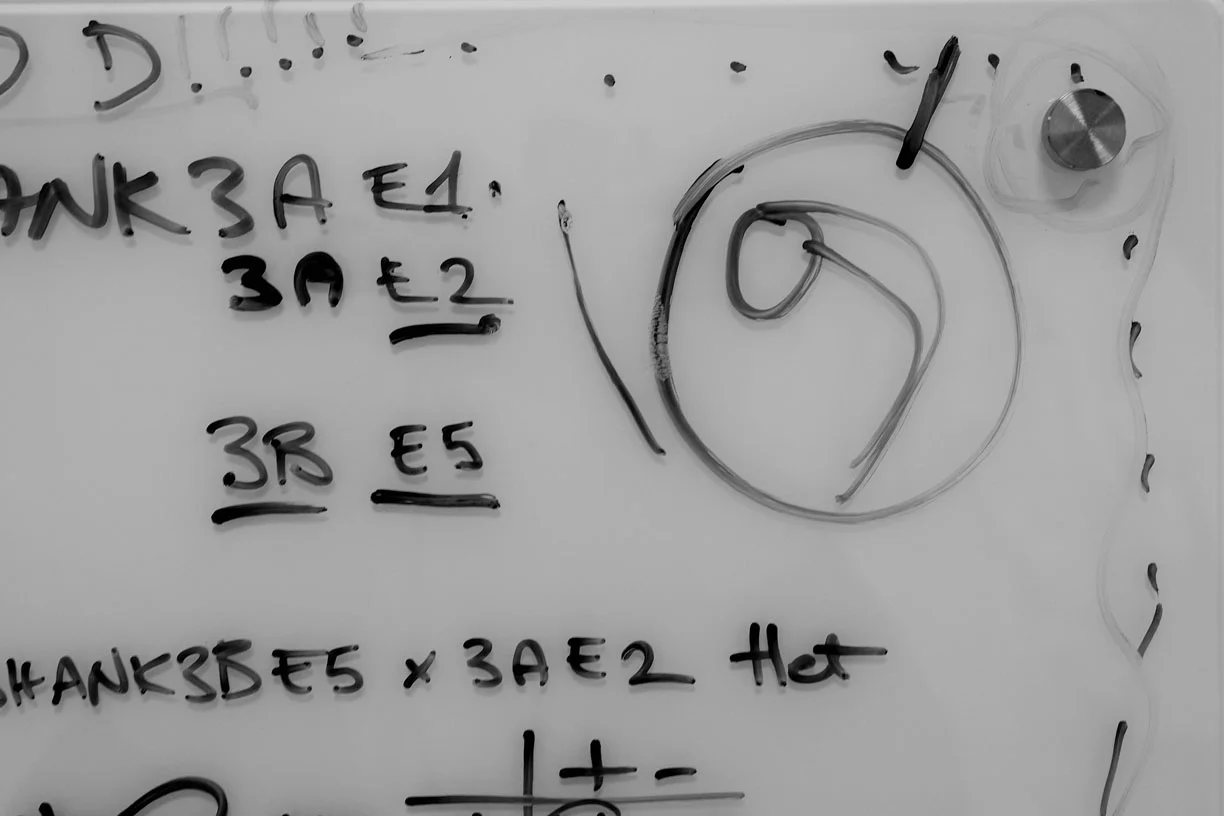 D!!!!!
3A E1.
3A E2
3B E5
SHANK3BE5 x 3AE2 Het
+ -